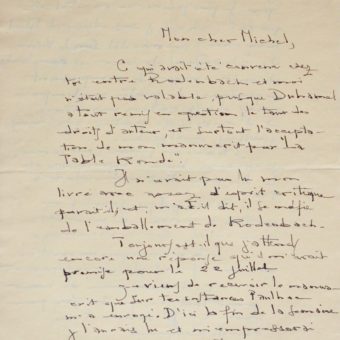 Mon cher Michel,
Ce qui avait été convenu chez
toi entre Rodenbach et moi
n'était pas valable, puisque Duhamel
a tout remis en question, le taux des
droits d'auteur, et surtout l'accepta-
tion de mon manuscrit pour "La
Table Ronde".
Il n'aurait pas lu mon
livre avec assez d'esprit critique
paraît-il, et, m'a-t-il dit, il se méfie
de l'emballement de Rodenbach.
Toujours est-il que j'attends
encore une réponse qu'on m'avait
promise pour le 22 juillet
Je viens de recevoir le manus-
crit que sur les instances Paulhac
m'a envoyé. D'ici la fin de la semaine
je l'aurais lu et m'empresserai